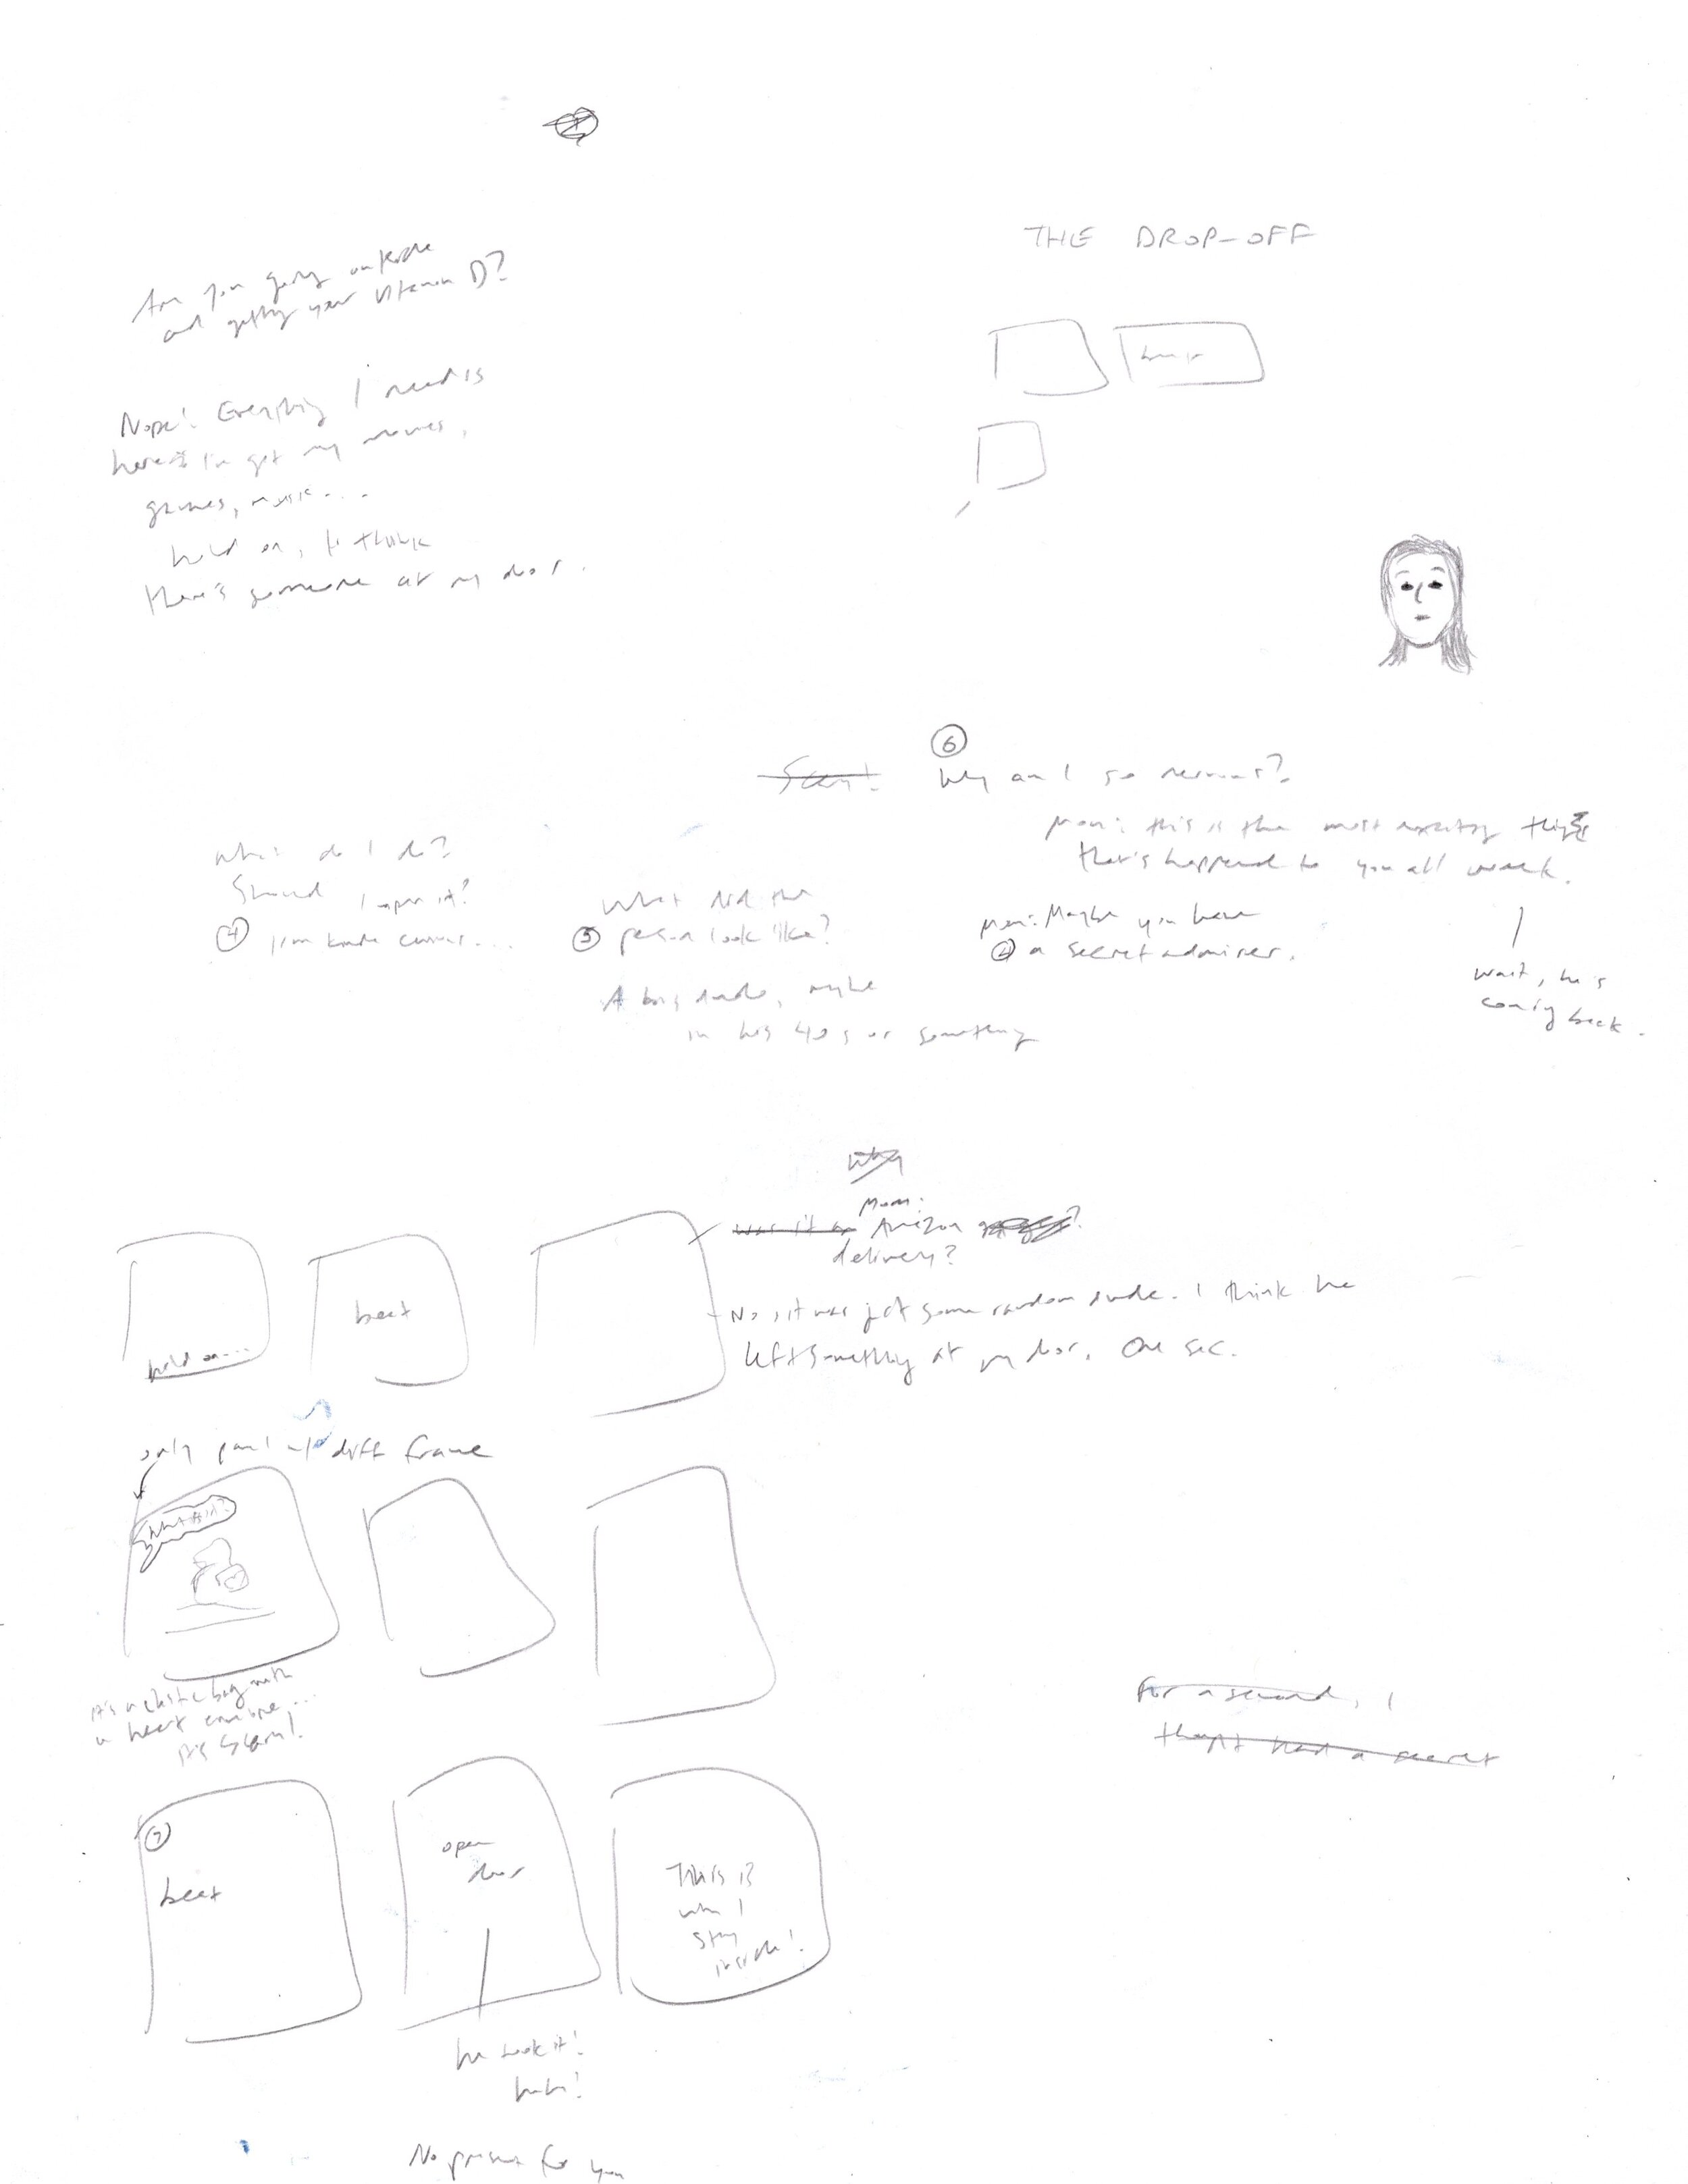 THE DROP-OFF
Are you going outside
and getting your vitamin D?
Nope! Everything I need is
here I've got my movies,
games, music...
hold on, I think
there's someone at my door.
beat
6
Why am I so nervous?
Mom: this is the most exciting thing
that's happened to you all week.
wait, he's
coming back.
What do I do?
Should I open it?
4 I'm kinda curious....
What did the
5 person look like?
A big dude, maybe
in his 40s or something
Mom: Maybe you have
a secret admirer.
Why
Mom:
was it an Amazon ?
delivery?
No, it was just some random dude. I think he
left something at my door. One sec.
hold on...
beat
only panel w/ diff frame
What is it?
It's a plastic bag with
a heart on one...
For a second, I
thought had a secret
7
beat
open
door
This is
why I
stay
inside!
he took it!
huh?
No present for you